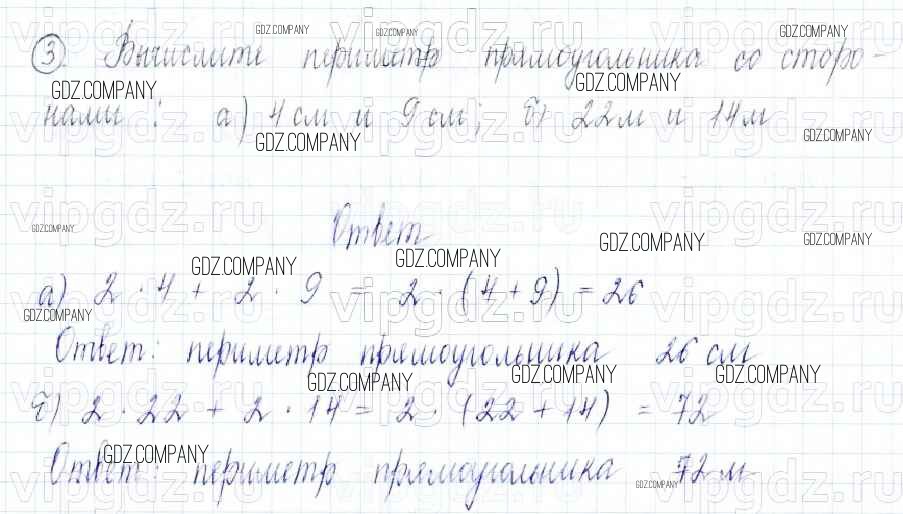 ③. Вычислите периметр прямоугольника со сторо-
нами: а) 4 см и 9 см; б) 22 м и 14 м
Ответ
а) 2 · 4 + 2 · 9 = 2 · (4 + 9) = 26
Ответ: периметр прямоугольника 26 см
б) 2 · 22 + 2 · 14 = 2 · (22 + 14) = 72
Ответ: периметр прямоугольника 72 м
vipgdz.ru
GDZ.COMPANY